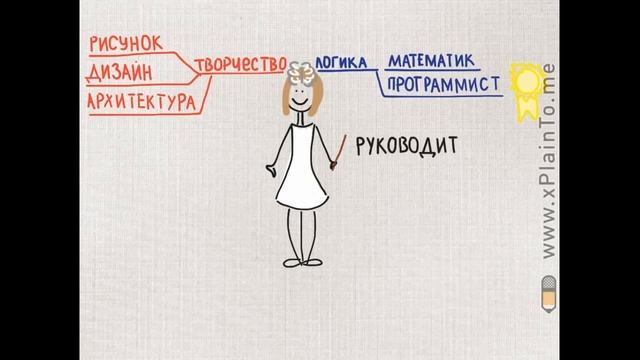 РИСУНОК
ДИЗАЙН
АРХИТЕКТУРА
ТВОРЧЕСТВО
ЛОГИКА
МАТЕМАТИК
ПРОГРАММИСТ
РУКОВОДИТ
www.xPlainTo.me